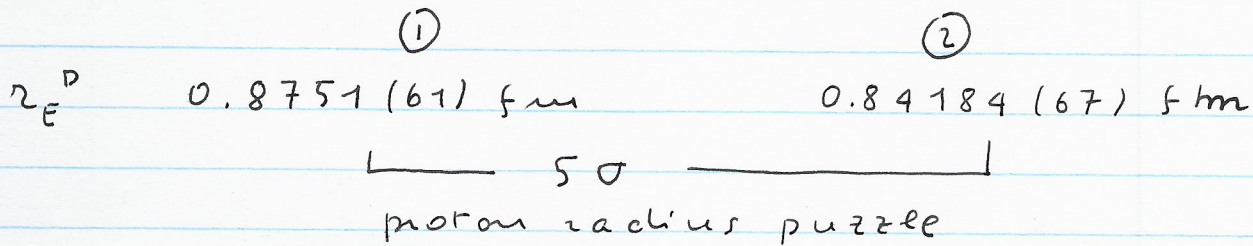 ① ②
r_E^p 0.8751(61) fm 0.84184(67) fm
5σ
proton radius puzzle